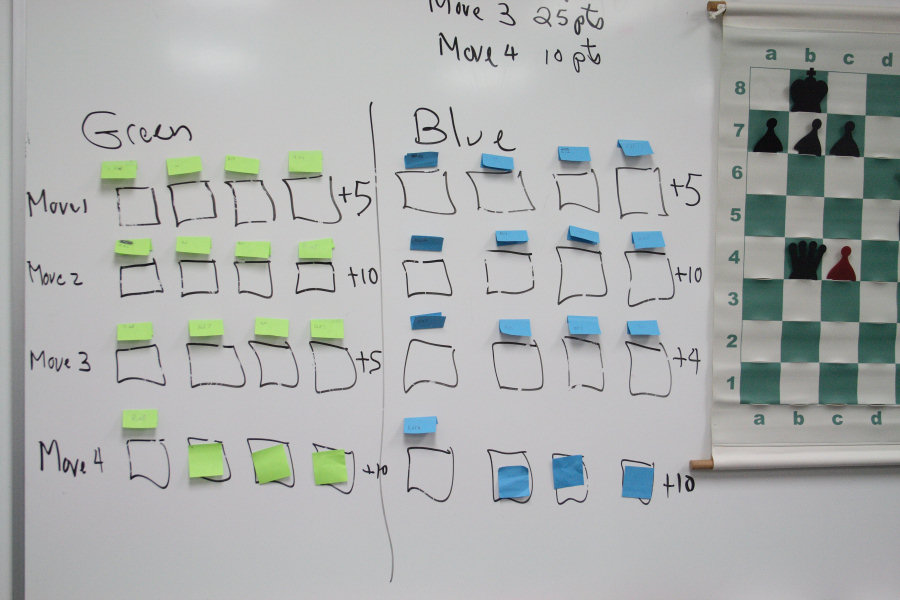 Move 3 25 pts
Move 4 10 pts
Green
Blue
Move 1 +5 +5
Move 2 +10 +10
Move 3 +5 +4
Move 4 +10 +10
a b c d
8
7
6
5
4
3
2
1
a b c d